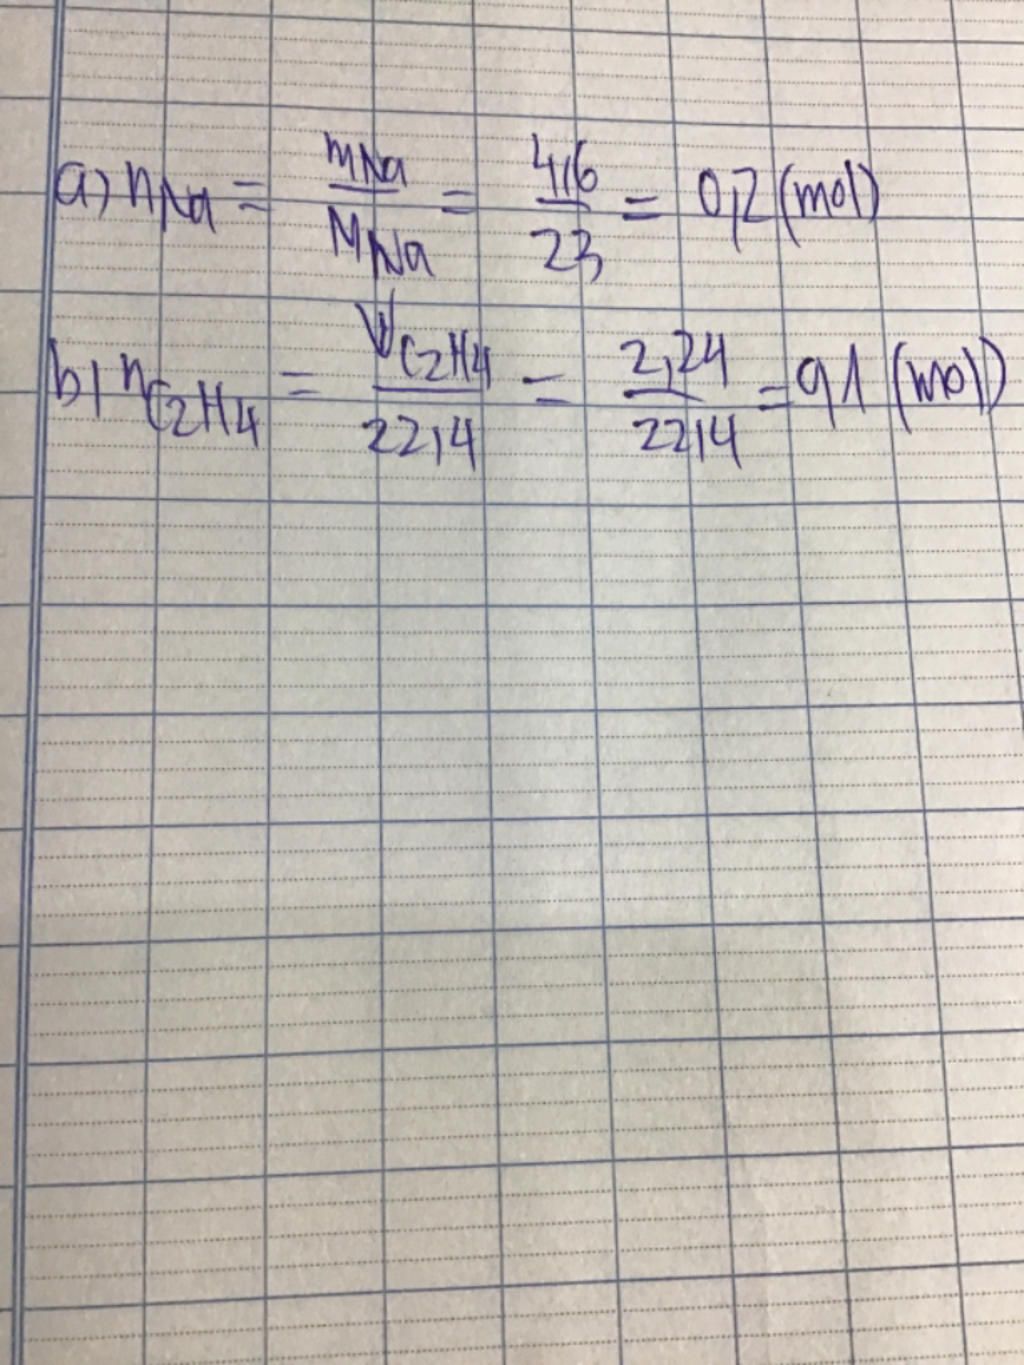 a) nNa = mNa / MNa = 4,6 / 23 = 0,2 (mol)
b) nC2H4 = VC2H4 / 22,4 = 2,24 / 22,4 = 0,1 (mol)